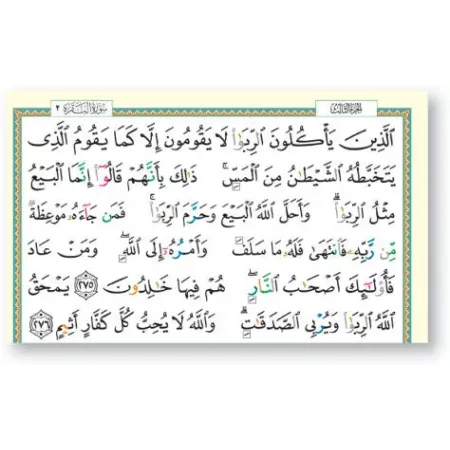 الجزء الثالث سورة البقرة ٢
الَّذِينَ يَأْكُلُونَ الرِّبَوٰا۟ لَا يَقُومُونَ إِلَّا كَمَا يَقُومُ الَّذِى
يَتَخَبَّطُهُ الشَّيْطَـٰنُ مِنَ الْمَسِّ ۚ ذَٰلِكَ بِأَنَّهُمْ قَالُوٓا۟ إِنَّمَا الْبَيْعُ
مِثْلُ الرِّبَوٰا۟ ۗ وَأَحَلَّ اللَّهُ الْبَيْعَ وَحَرَّمَ الرِّبَوٰا۟ ۚ فَمَن جَآءَهُۥ مَوْعِظَةٌ
مِّن رَّبِّهِۦ فَانتَهَىٰ فَلَهُۥ مَا سَلَفَ وَأَمْرُهُۥٓ إِلَى اللَّهِ ۖ وَمَنْ عَادَ
فَأُو۟لَـٰٓئِكَ أَصْحَـٰبُ النَّارِ ۖ هُمْ فِيهَا خَـٰلِدُونَ ٢٧٥ يَمْحَقُ
اللَّهُ الرِّبَوٰا۟ وَيُرْبِى الصَّدَقَـٰتِ ۗ وَاللَّهُ لَا يُحِبُّ كُلَّ كَفَّارٍ أَثِيمٍ ٢٧٦